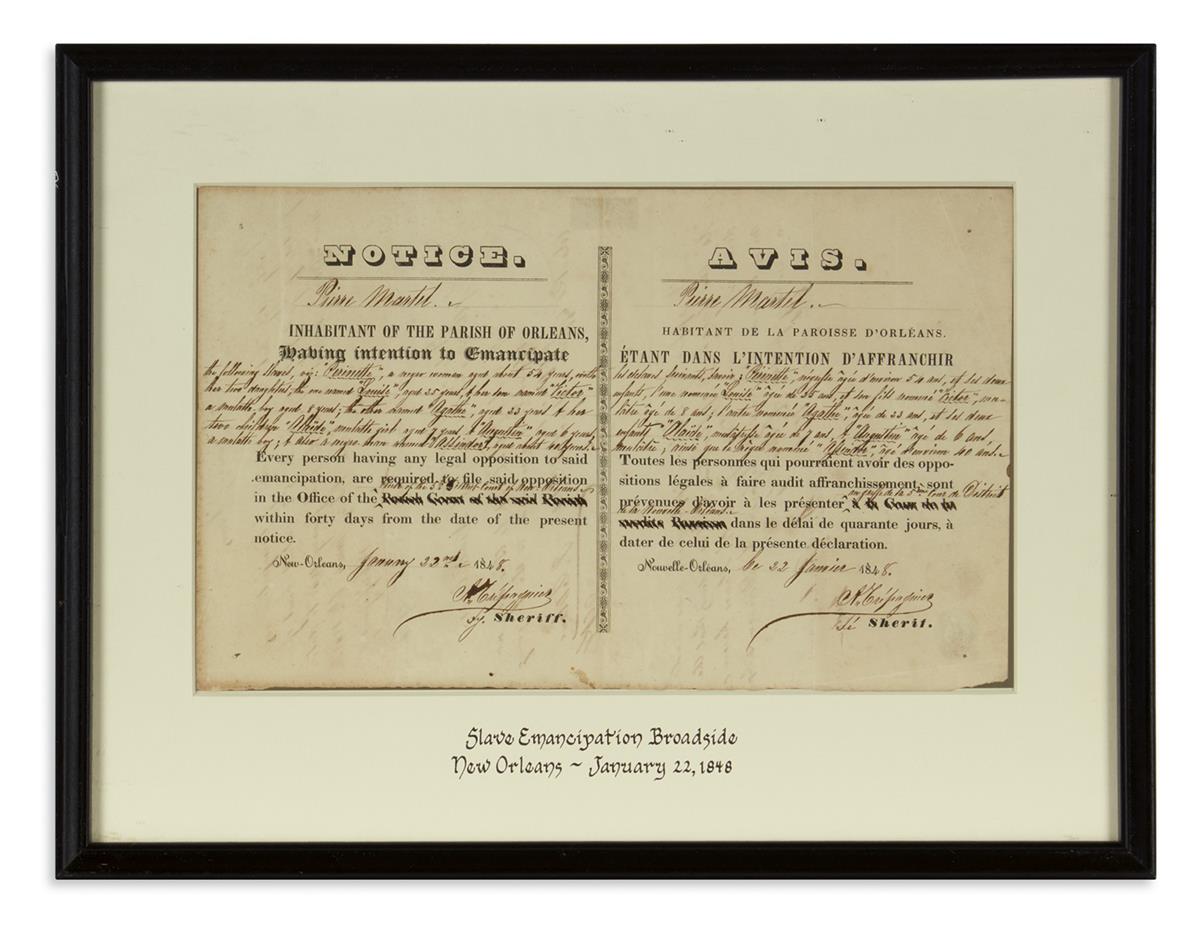 NOTICE.
Pierre Martel.
INHABITANT OF THE PARISH OF ORLEANS,
Having intention to Emancipate
the following slaves, viz: a negro woman aged about 54 years, with
her two daughters, the one named "Louise", aged 35 years, & her son named "Victor"
a mulatto boy aged 8 years; the other named "Agathe", aged 33 years & her
two children mulatto girl aged 7 years & "Augustin" aged 6 years,
a mulatto boy; & also a negro man named aged about 40 years.
Every person having any legal opposition to said
emancipation, are required to file said opposition
District Court of New Orleans
in the Office of the Parish Court of the said Parish
within forty days from the date of the present
notice.
New-Orleans, January 22nd 1848.
Sheriff.
AVIS.
Pierre Martel.
HABITANT DE LA PAROISSE D'ORLÉANS.
ÉTANT DANS L'INTENTION D'AFFRANCHIR
les esclaves suivants, savoir: négresse âgée d'environ 54 ans, et ses deux
enfants, l'une nommée "Louise" âgée de 35 ans, et son fils nommé "Victor", mu-
lâtre âgé de 8 ans; l'autre nommée "Agathe", âgée de 33 ans, et ses deux
enfants mulâtresse âgée de 7 ans, & "Augustin" âgé de 6 ans,
mulâtre; ainsi que le nègre nommé âgé d'environ 40 ans.
Toutes les personnes qui pourraient avoir des oppo-
sitions légales à faire audit affranchissement, sont
au greffe de la Cour de District
prévenues d'avoir à les présenter à la Cour de la
de la Nouvelle Orléans
susdite Paroisse dans le délai de quarante jours, à
dater de celui de la présente déclaration.
Nouvelle-Orléans, le 22 Janvier 1848.
Sherif.
Slave Emancipation Broadside
New Orleans ~ January 22, 1848